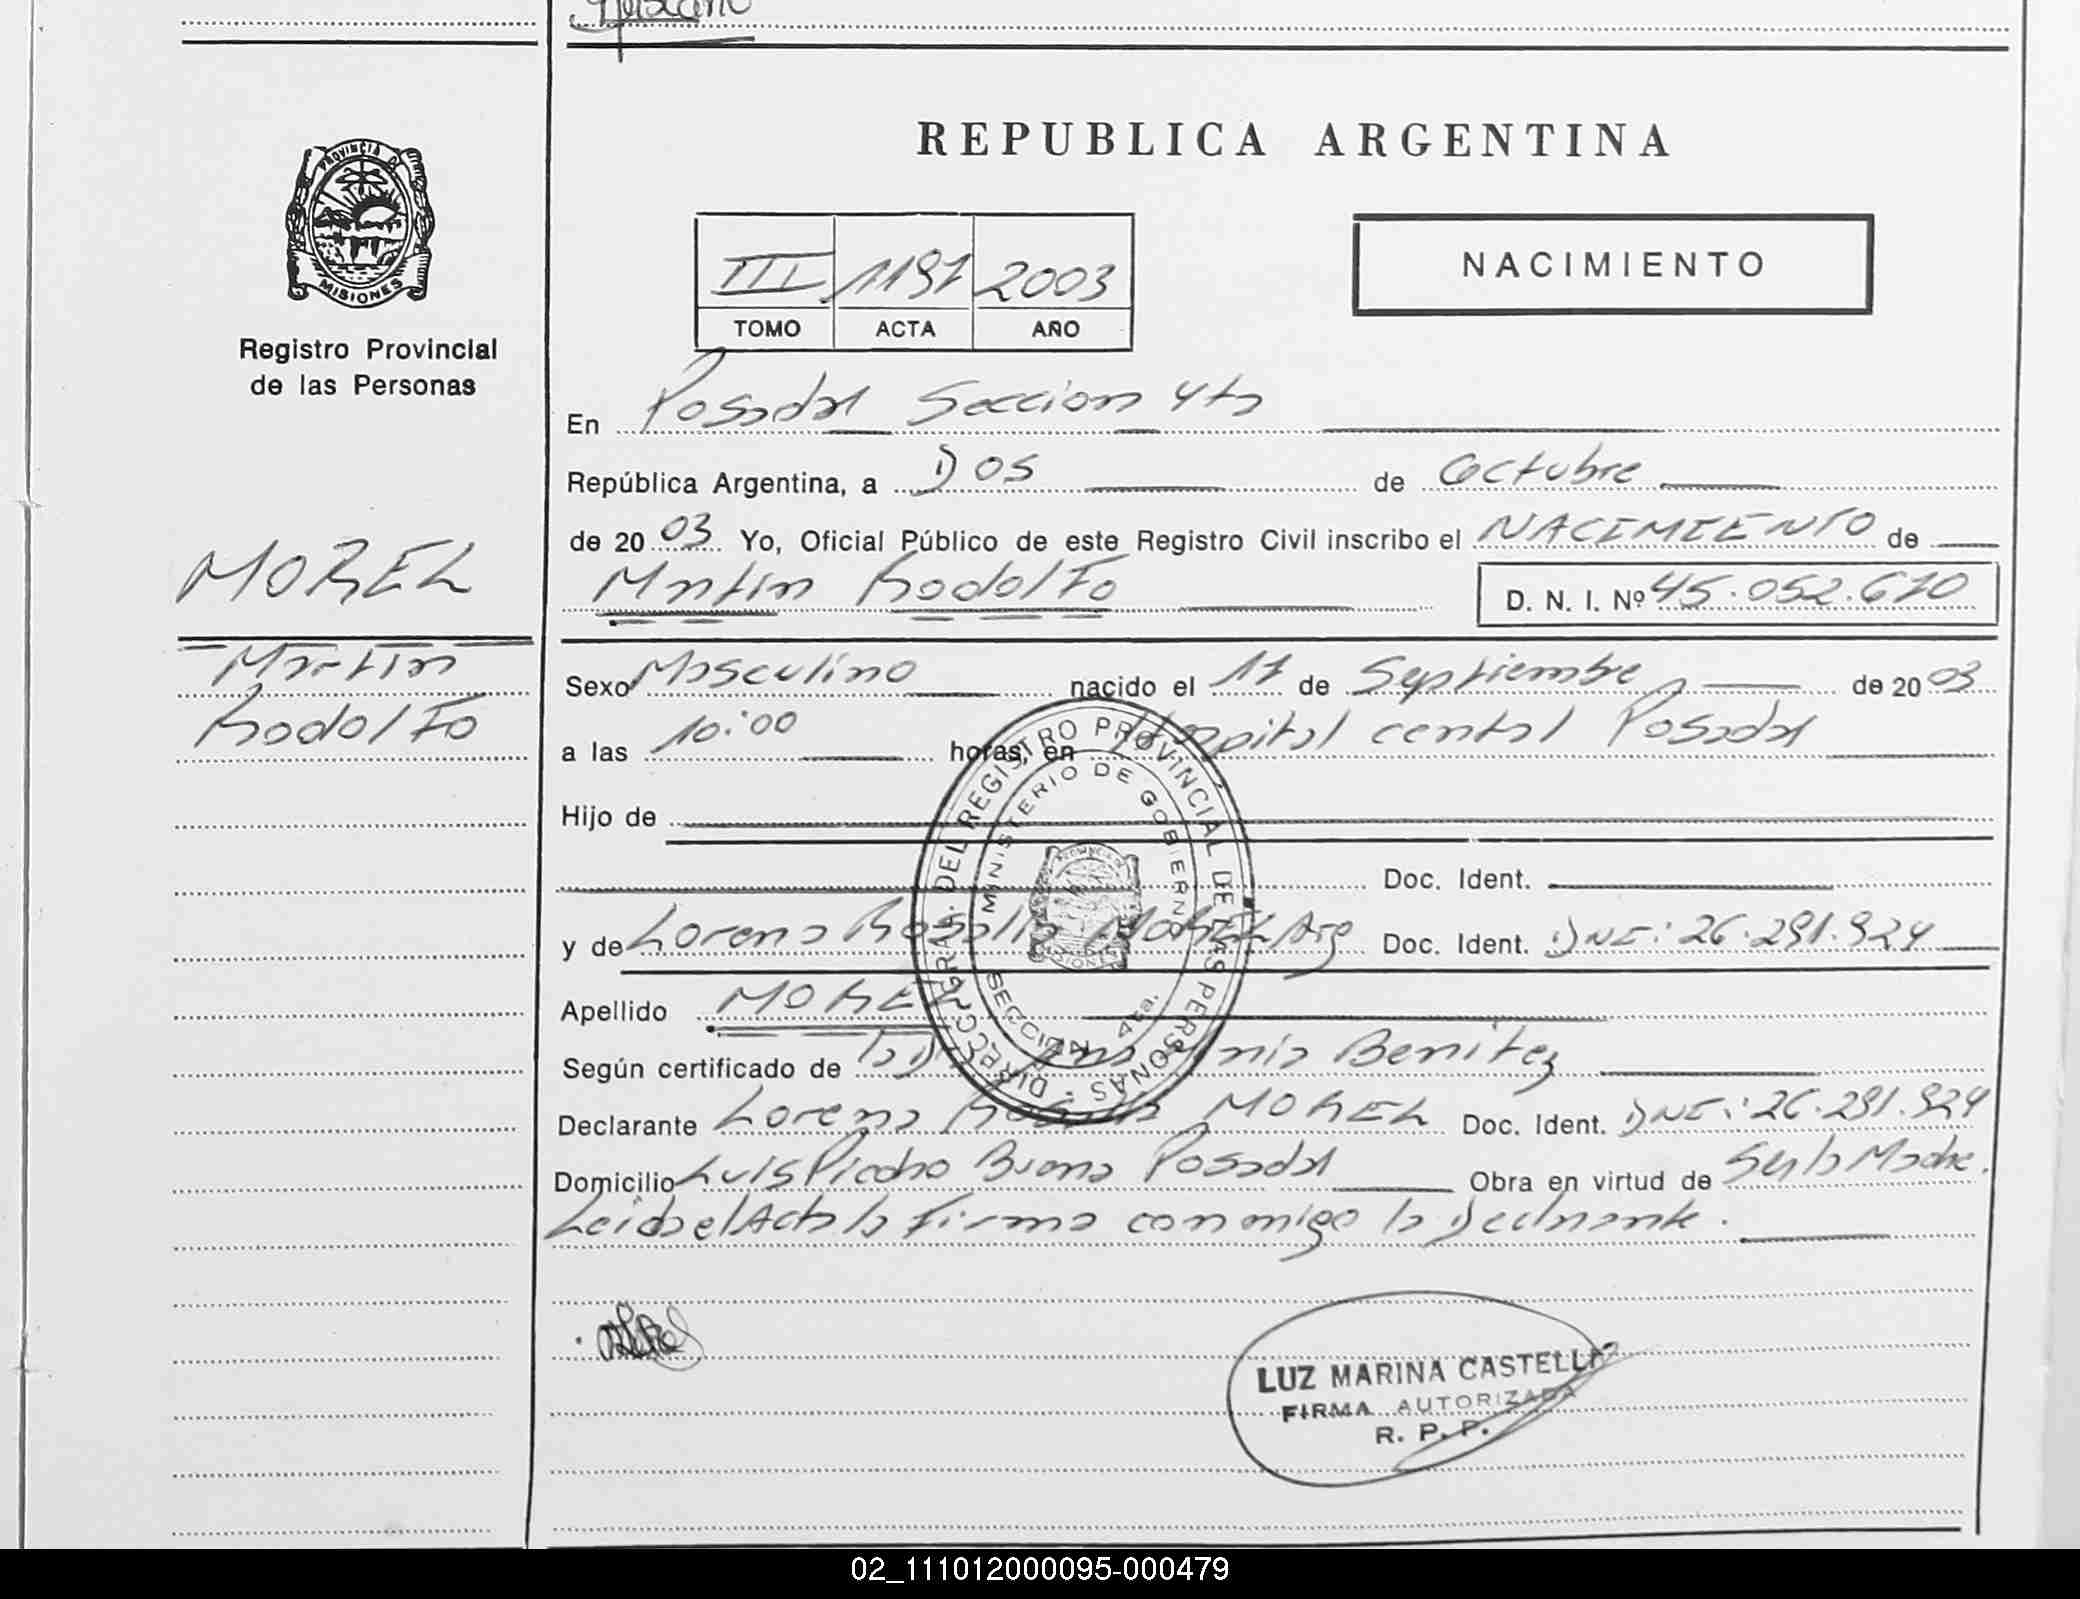 REPUBLICA ARGENTINA
PROVINCIA D MISIONES
Registro Provincial
de las Personas
III 1197 2003
TOMO ACTA AÑO
NACIMIENTO
En Posadas Seccion 4ta
República Argentina, a Dos de Octubre
de 2003 Yo, Oficial Público de este Registro Civil inscribo el NACIMIENTO de
Martin Rodolfo D. N. I. Nº 45.052.670
MOREL
Martin
Rodolfo
Sexo Masculino nacido el 17 de Septiembre de 2003
a las 10:00 horas, en Hospital central Posadas
Hijo de
Doc. Ident.
y de Lorena Rosalia MOREL Arg Doc. Ident. DNI: 26.291.924
Apellido MOREL
Según certificado de la Maria Benitez
Declarante Lorena Rosalia MOREL Doc. Ident. DNI: 26.291.924
Domicilio Luis Piedra Buena Posadas Obra en virtud de Ser la Madre.
Leida el Acta la Firma conmigo la Declarante.
DIRECC. GRAL. DEL REGISTRO PROVINCIAL DE LAS PERSONAS
MINISTERIO DE GOBIERNO
SECCION 4ta.
LUZ MARINA CASTELLI
FIRMA AUTORIZADA
R. P. P.
02_111012000095-000479